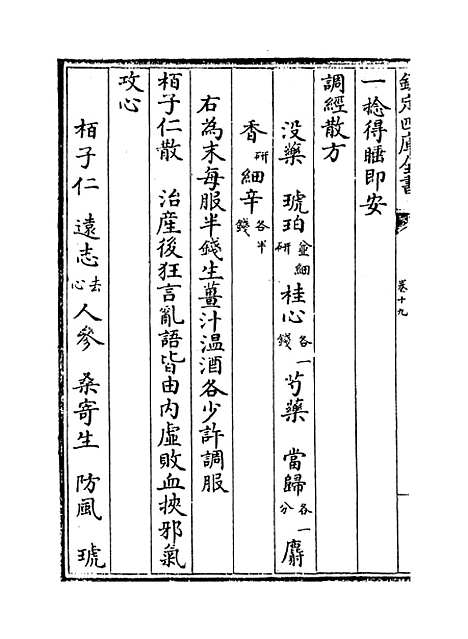 欽定四庫全書
卷十九
一捻得睡即安
調經散方
没藥　琥珀並細研　桂心各一錢　芍藥　當歸各一分　麝
香研　細辛各半錢
右為末每服半錢生薑汁温酒各少許調服
栢子仁散　治産後狂言亂語皆由内虛敗血挾邪氣
攻心
栢子仁　遠志去心　人參　桑寄生　防風　琥